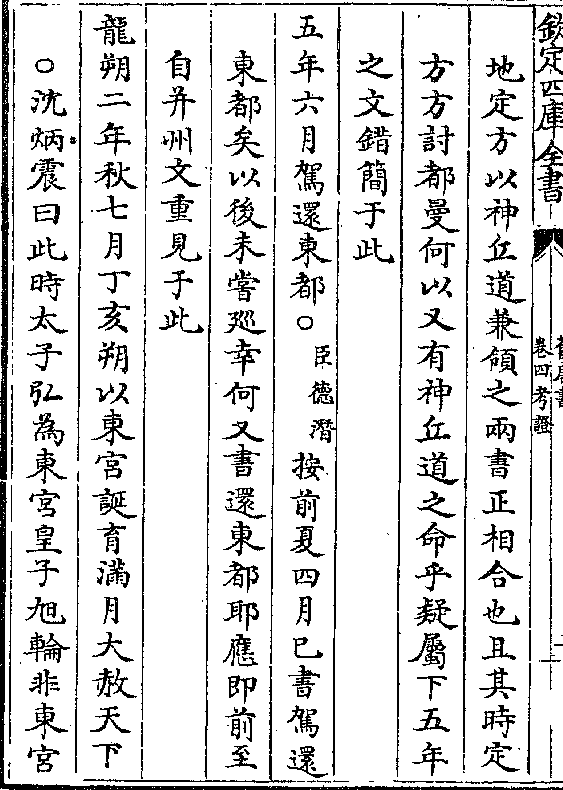 欽定四庫全書
卷四考證
地定方以神丘道兼領之兩書正相合也且其時定
方方討都曼何以又有神丘道之命乎疑屬下五年
之文錯簡于此
五年六月駕還東都○臣德潛按前夏四月已書駕還
東都矣以後未嘗廵幸何又書還東都耶應即前至
自并州文重見于此
龍朔二年秋七月丁亥朔以東宮誕育滿月大赦天下
○沈炳震曰此時太子弘為東宮皇子旭輪非東宮